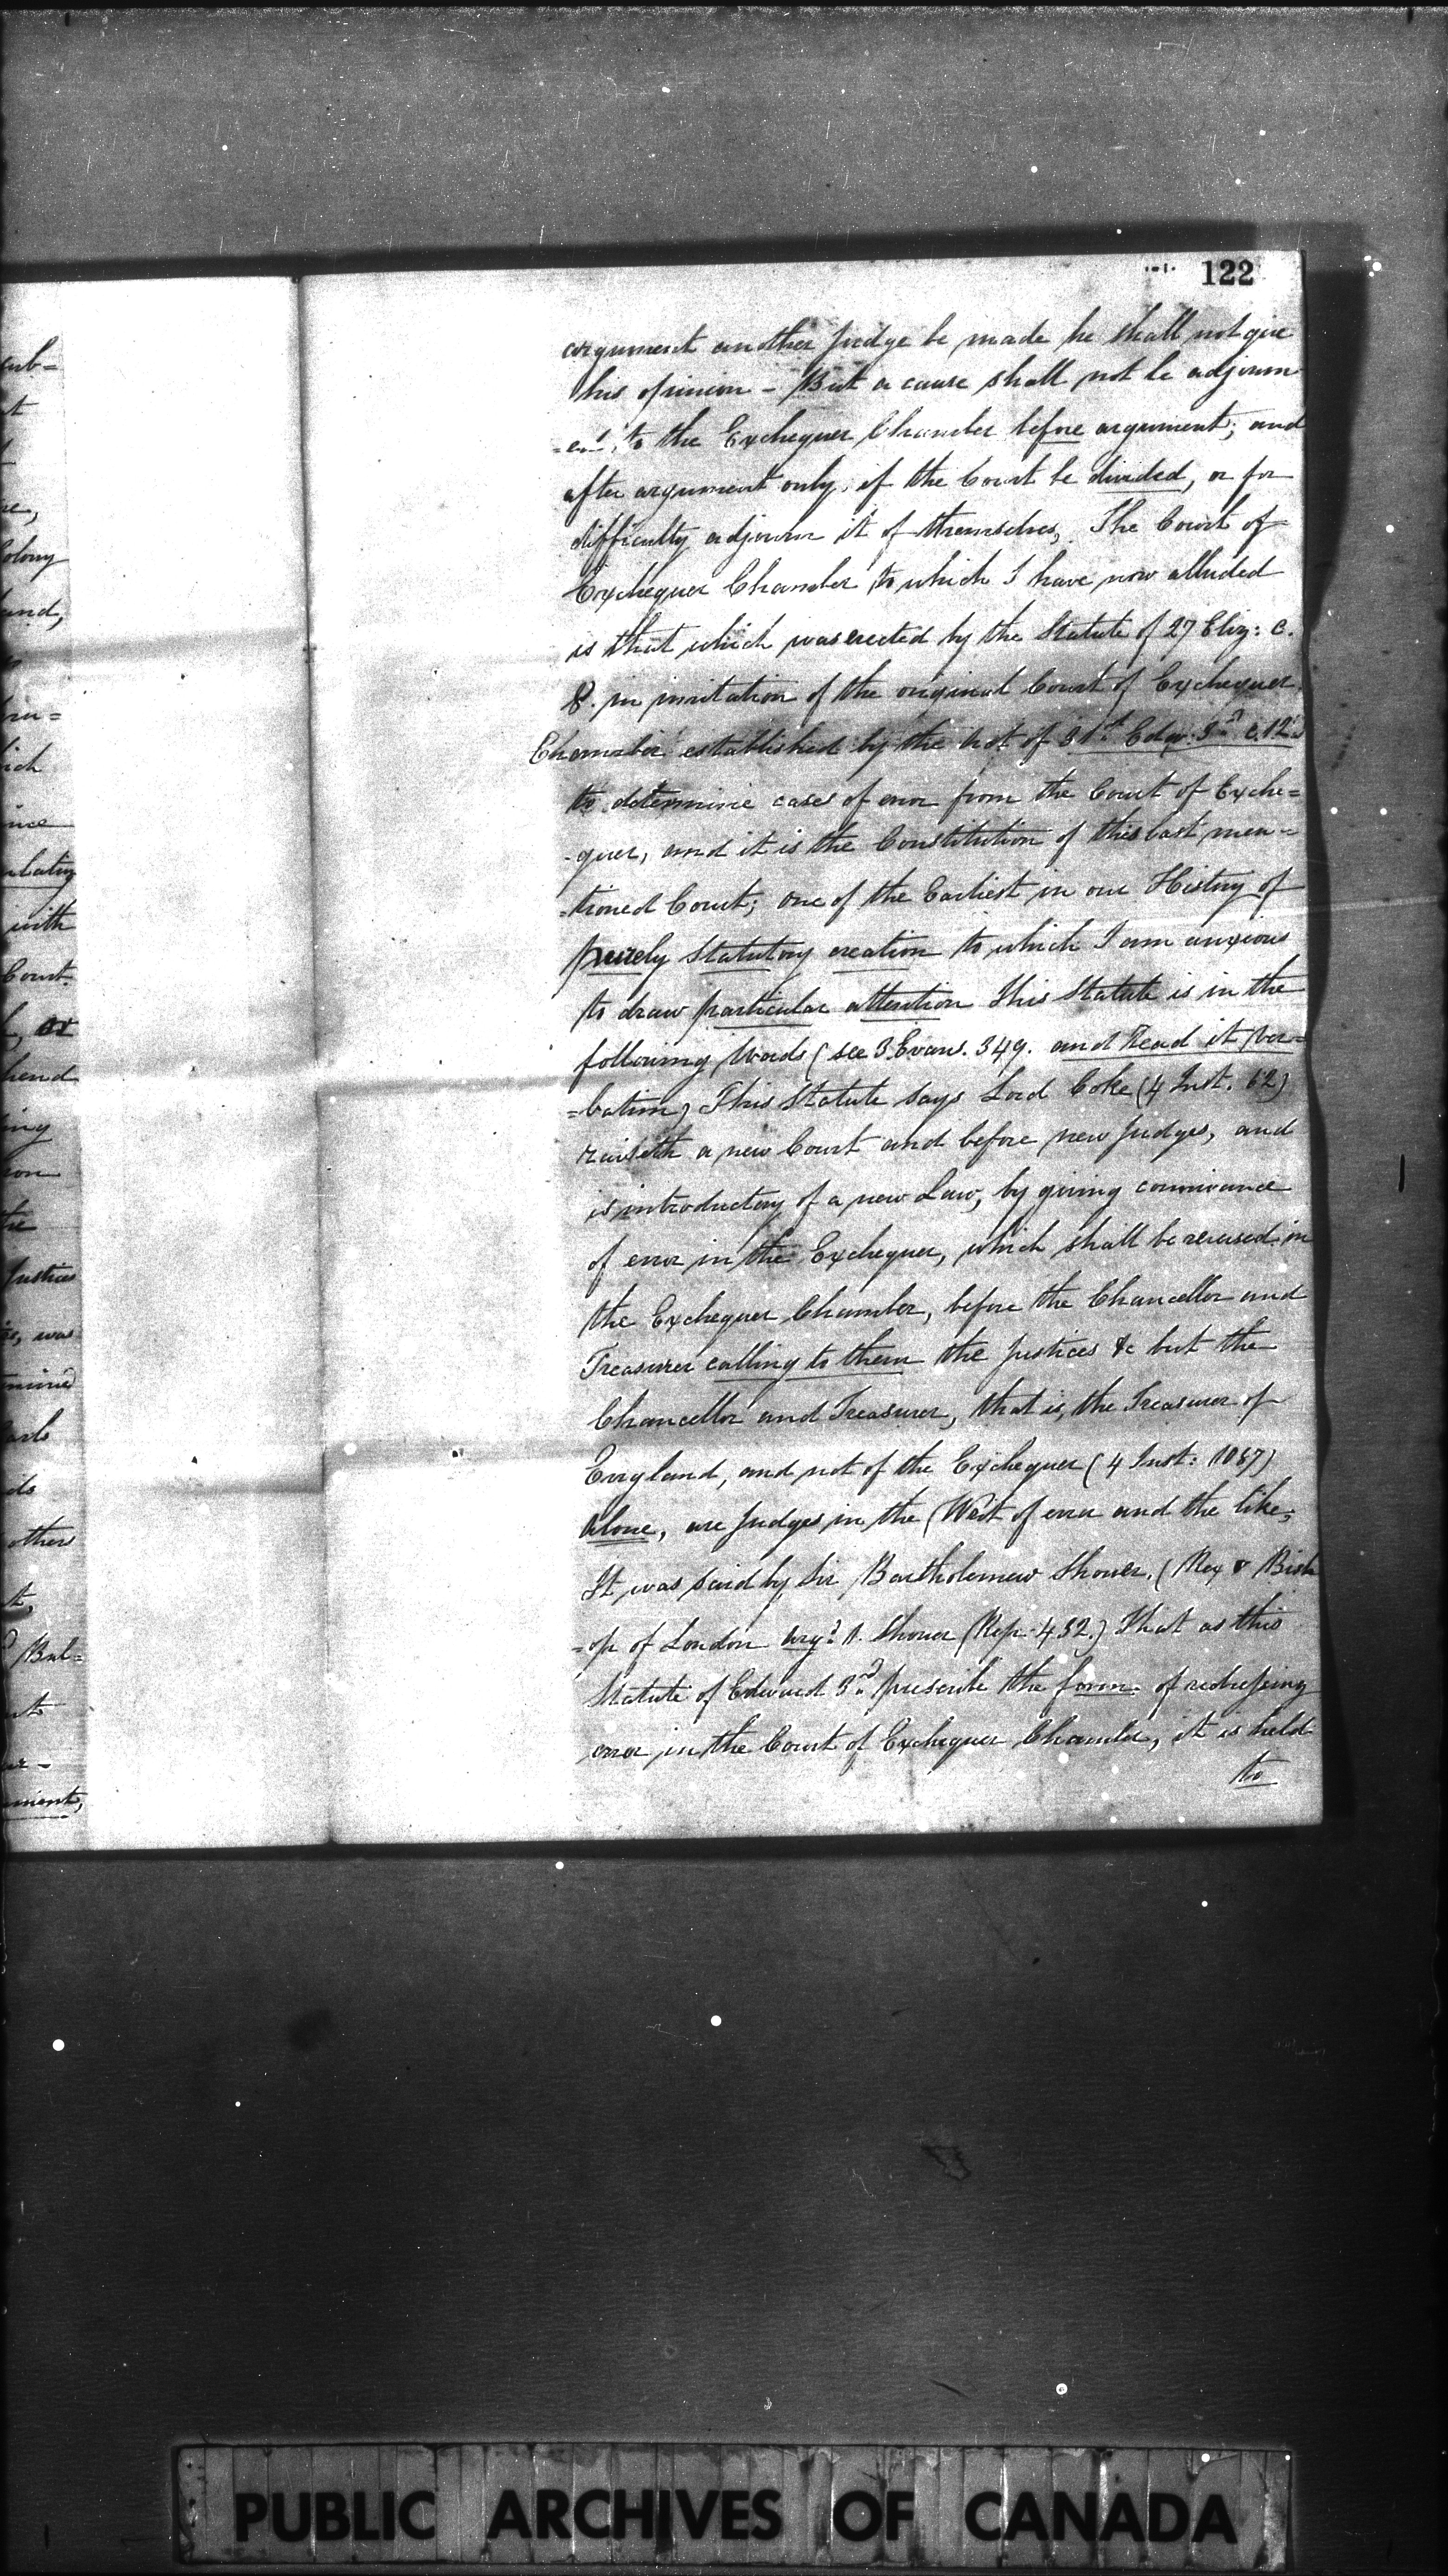 122
argument another judge be made he shall not give
his opinion - But a cause shall not be adjourn
=ed to the Exchequer Chamber before argument; and
after argument only, if the Court be divided, or for
difficulty adjourn it of themselves, The Court of
Exchequer Chamber to which I have now alluded
is that which was erected by the Statute of 27 Eliz: c.
8. in imitation of the original Court of Exchequer
Chamber established by the Act of 31st Edw. 3rd c. 12
to determine cases of error from the Court of Exche=
-quer, and it is the Constitution of this last men-
=tioned Court; one of the Earliest in our History of
purely Statutory creation to which I am anxious
to draw particular attention This Statute is in the
following Words (see 3. Evans. 349. and Read it ver=
=batim) This Statute says Lord Coke (4 Inst. 62)
raiseth a new Court and before new Judges, and
is introductory of a new Law, by giving connivance
of error in the Exchequer, which shall be reversed in
the Exchequer Chamber, before the Chancellor and
Treasurer calling to them the Justices &c but the
Chancellor and Treasurer, that is, the Treasurer of
England, and not of the Exchequer (4 Inst:
Alone, are Judges in the Writ of error and the like;
It was said by Sir Bartholemew Shower. (Rex v Bish
=op of London arg: 1. Shower Rep. 432.) That as this
Statute of Edward 3rd prescribe the form of redressing
error in the Court of Exchequer Chamber, it is held
to
ub=
t
olony
and,
ich
nce
with
Court.
or
hend
ing
ion
the
Justices
was
ds
others
t,
Bul=
ment,
PUBLIC ARCHIVES OF CANADA